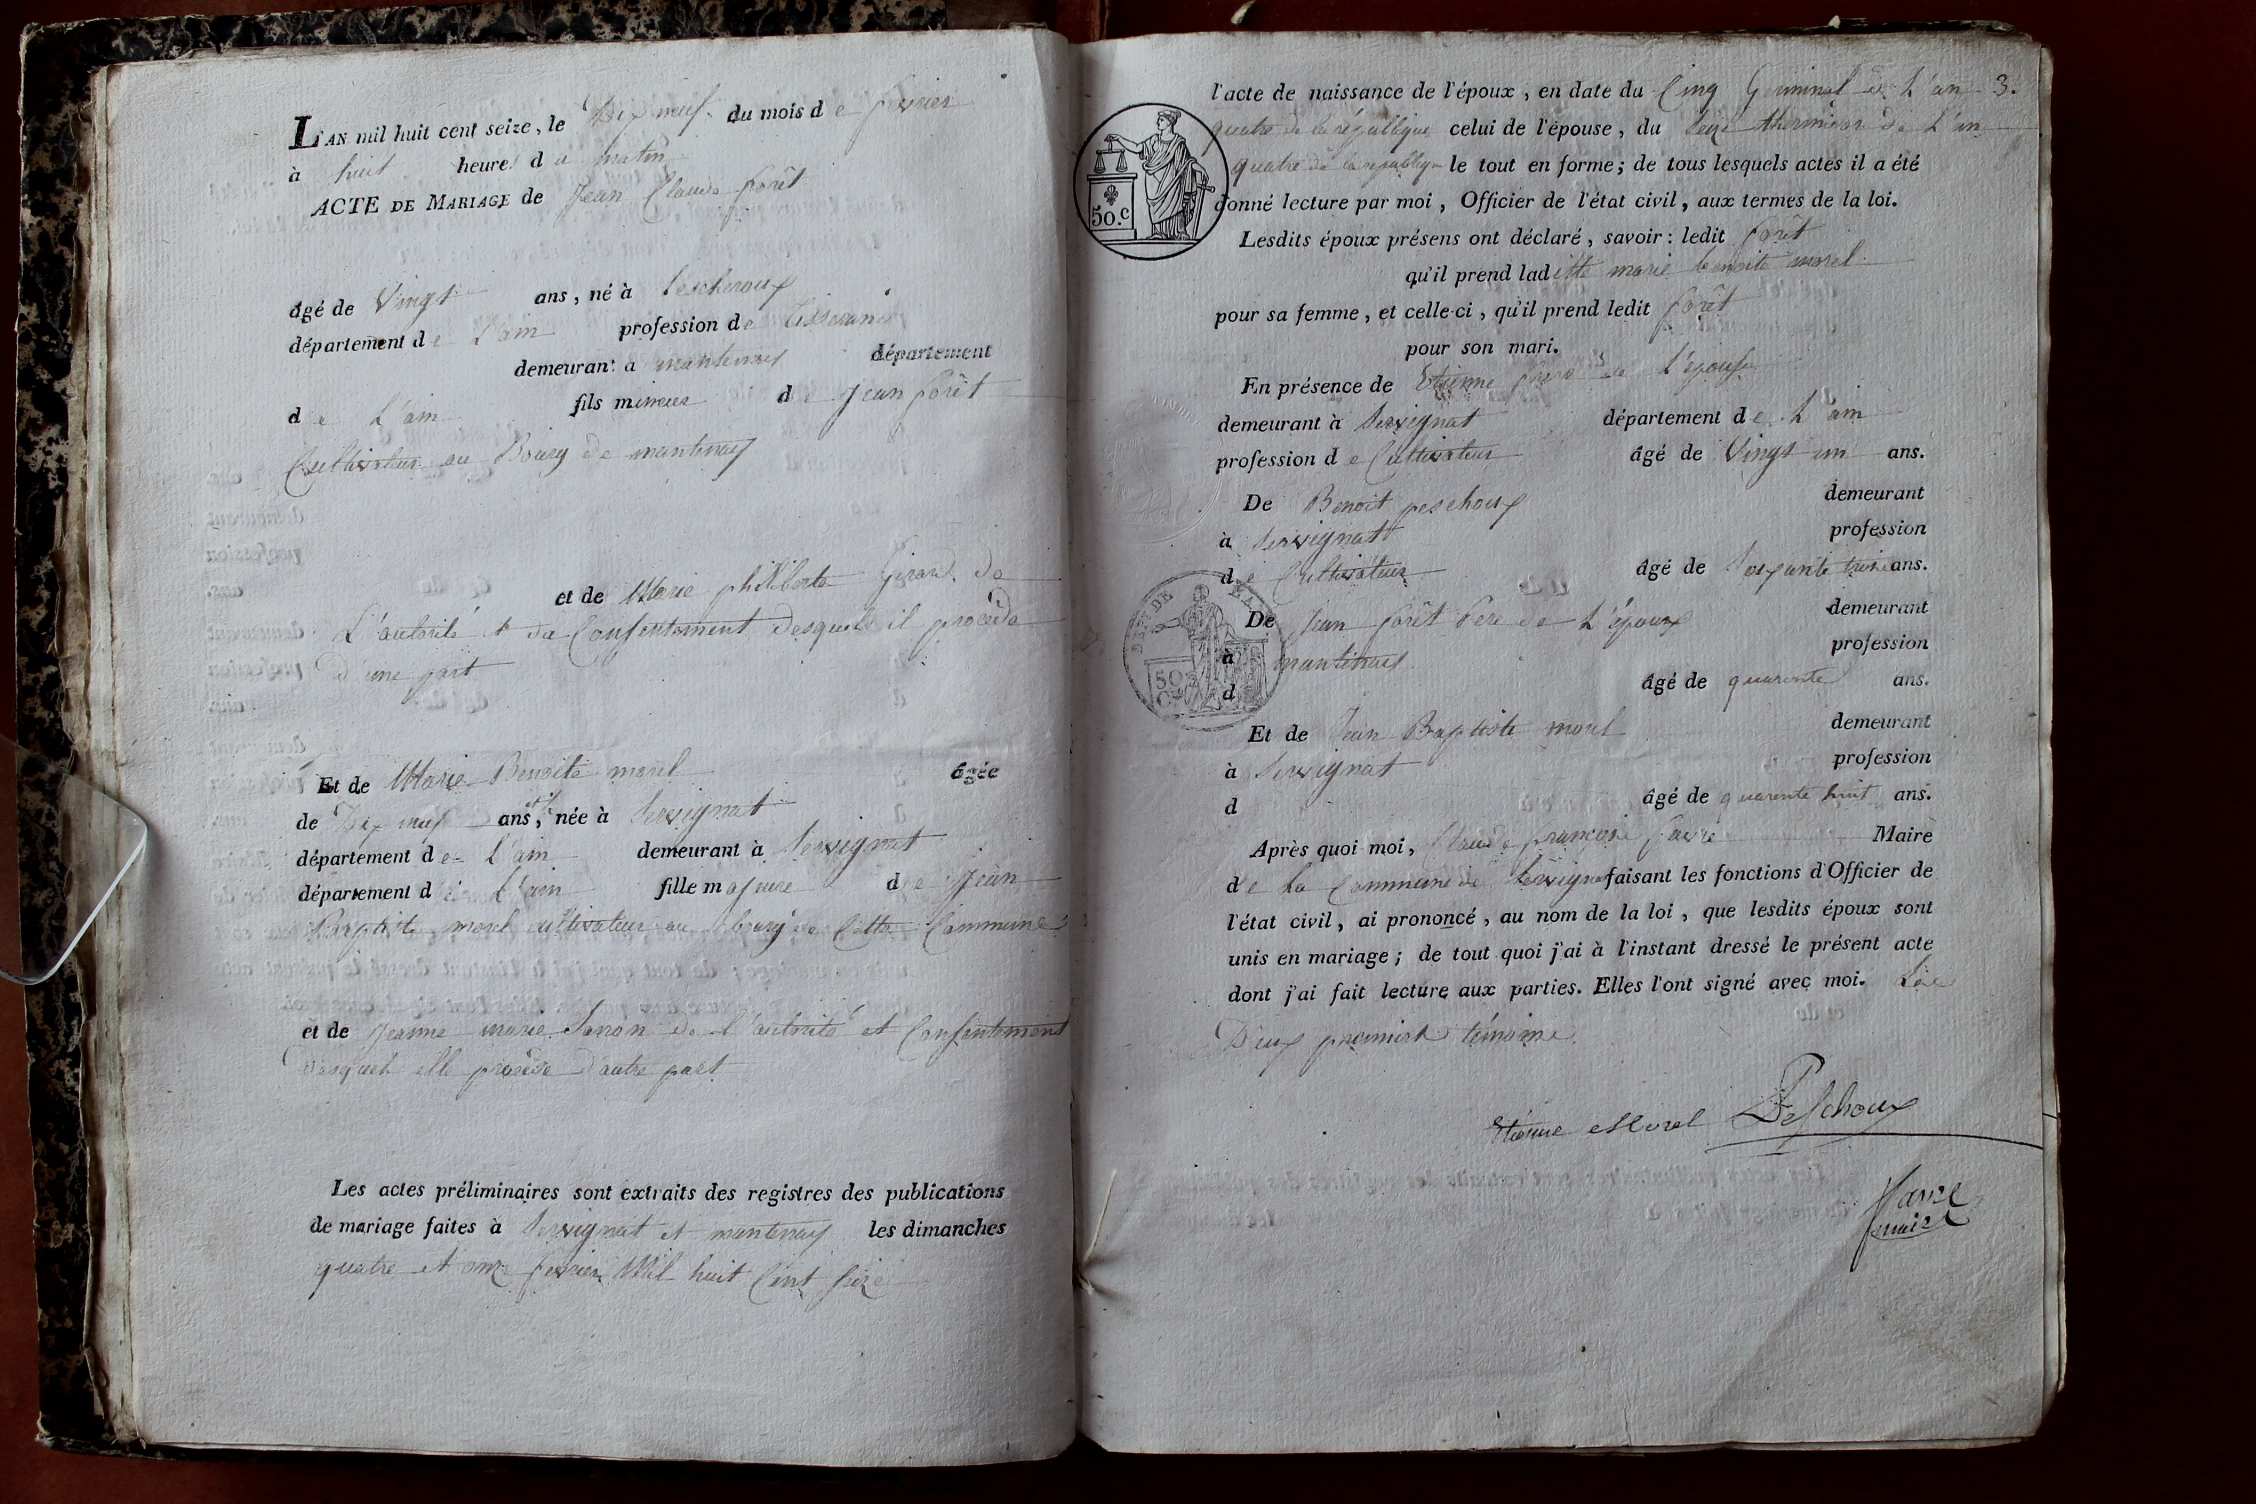 L'AN mil huit cent seize, le Dix neuf du mois de fevrier
à huit heures du matin
ACTE DE MARIAGE de Jean Claude forêt
âgé de Vingt ans, né à Lescheroux
département de L'ain profession de tisserand
demeurant à mantenay département
de L'ain fils mineur de Jean forêt
Cultivateur au Bourg de mantenay
et de Marie philiberte Girard de
L'autorité & du Consentement desquels il procède
D'une part
Et de Marie Benoite morel âgée
de Dix neuf ans, née à Servignat
département de L'ain demeurant à Servignat
département de L'ain fille majeure de Jean
Baptiste morel cultivateur au bourg de Cette Commune
et de Jeanne marie de L'autorité et Consentement
Desquels elle procède D'autre part
Les actes préliminaires sont extraits des registres des publications
de mariage faites à Servignat et mantenay les dimanches
quatre et onze fevrier Mil huit Cent Seize
l'acte de naissance de l'époux, en date du Cinq Germinal de L'an 3.
quatre de la république celui de l'épouse, du Seize thermidor de L'an
quatre de la republiq le tout en forme; de tous lesquels actes il a été
donné lecture par moi, Officier de l'état civil, aux termes de la loi.
50.c
Lesdits époux présens ont déclaré, savoir: ledit forêt
qu'il prend laditte marie benoite morel
pour sa femme, et celle-ci, qu'il prend ledit forêt
pour son mari.
En présence de Etienne frere de L'épouse
demeurant à Servignat département de L'ain
profession de Cultivateur âgé de Vingt un ans.
De Benoit peschoux demeurant
à Servignat profession
de Cultivateur âgé de Soixante treize ans.
De Jean forêt Pere de L'époux demeurant
à mantenay profession
d âgé de quarente ans.
50
Et de Jean Baptiste morel demeurant
à Servignat profession
d âgé de quarente huit ans.
Après quoi moi, Claude françois favre Maire
de La Commune de Servignat faisant les fonctions d'Officier de
l'état civil, ai prononcé, au nom de la loi, que lesdits époux sont
unis en mariage; de tout quoi j'ai à l'instant dressé le présent acte
dont j'ai fait lecture aux parties. Elles l'ont signé avec moi. Les
Deux premiers témoins
Etienne Morel PeSchoux
favre
maire